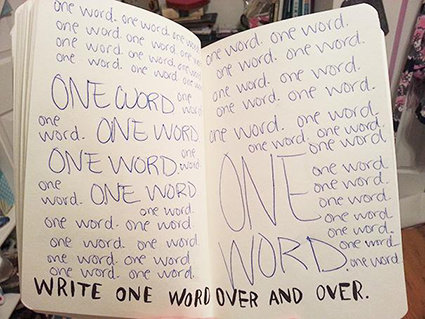 one word. one word. one word.
one word. one word. one word.
one word. one word. one word.
one word. one word. one word.
ONE WORD one word
one word. ONE WORD
ONE WORD. one word.
one word. ONE WORD
one word.
one word. one word.
one word. one word.
one word. one word.
one word. one word.
one word. one word.
one word. one word.
one word. one word.
one word. one word.
one word. one word.
one word
ONE
one word.
one word.
one word.
one word.
one word.
WORD.
one word.
one word.
WRITE ONE WORD OVER AND OVER.